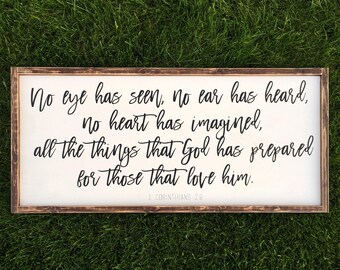 No eye has seen, no ear has heard,
no heart has imagined,
all the things that God has prepared
for those that love him.
1 CORINTHIANS 2:9